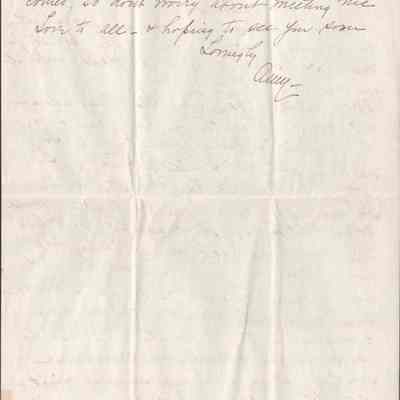 comes, so don't worry about meeting me
Love to all - & hoping to see you soon
Lovingly
Amy -